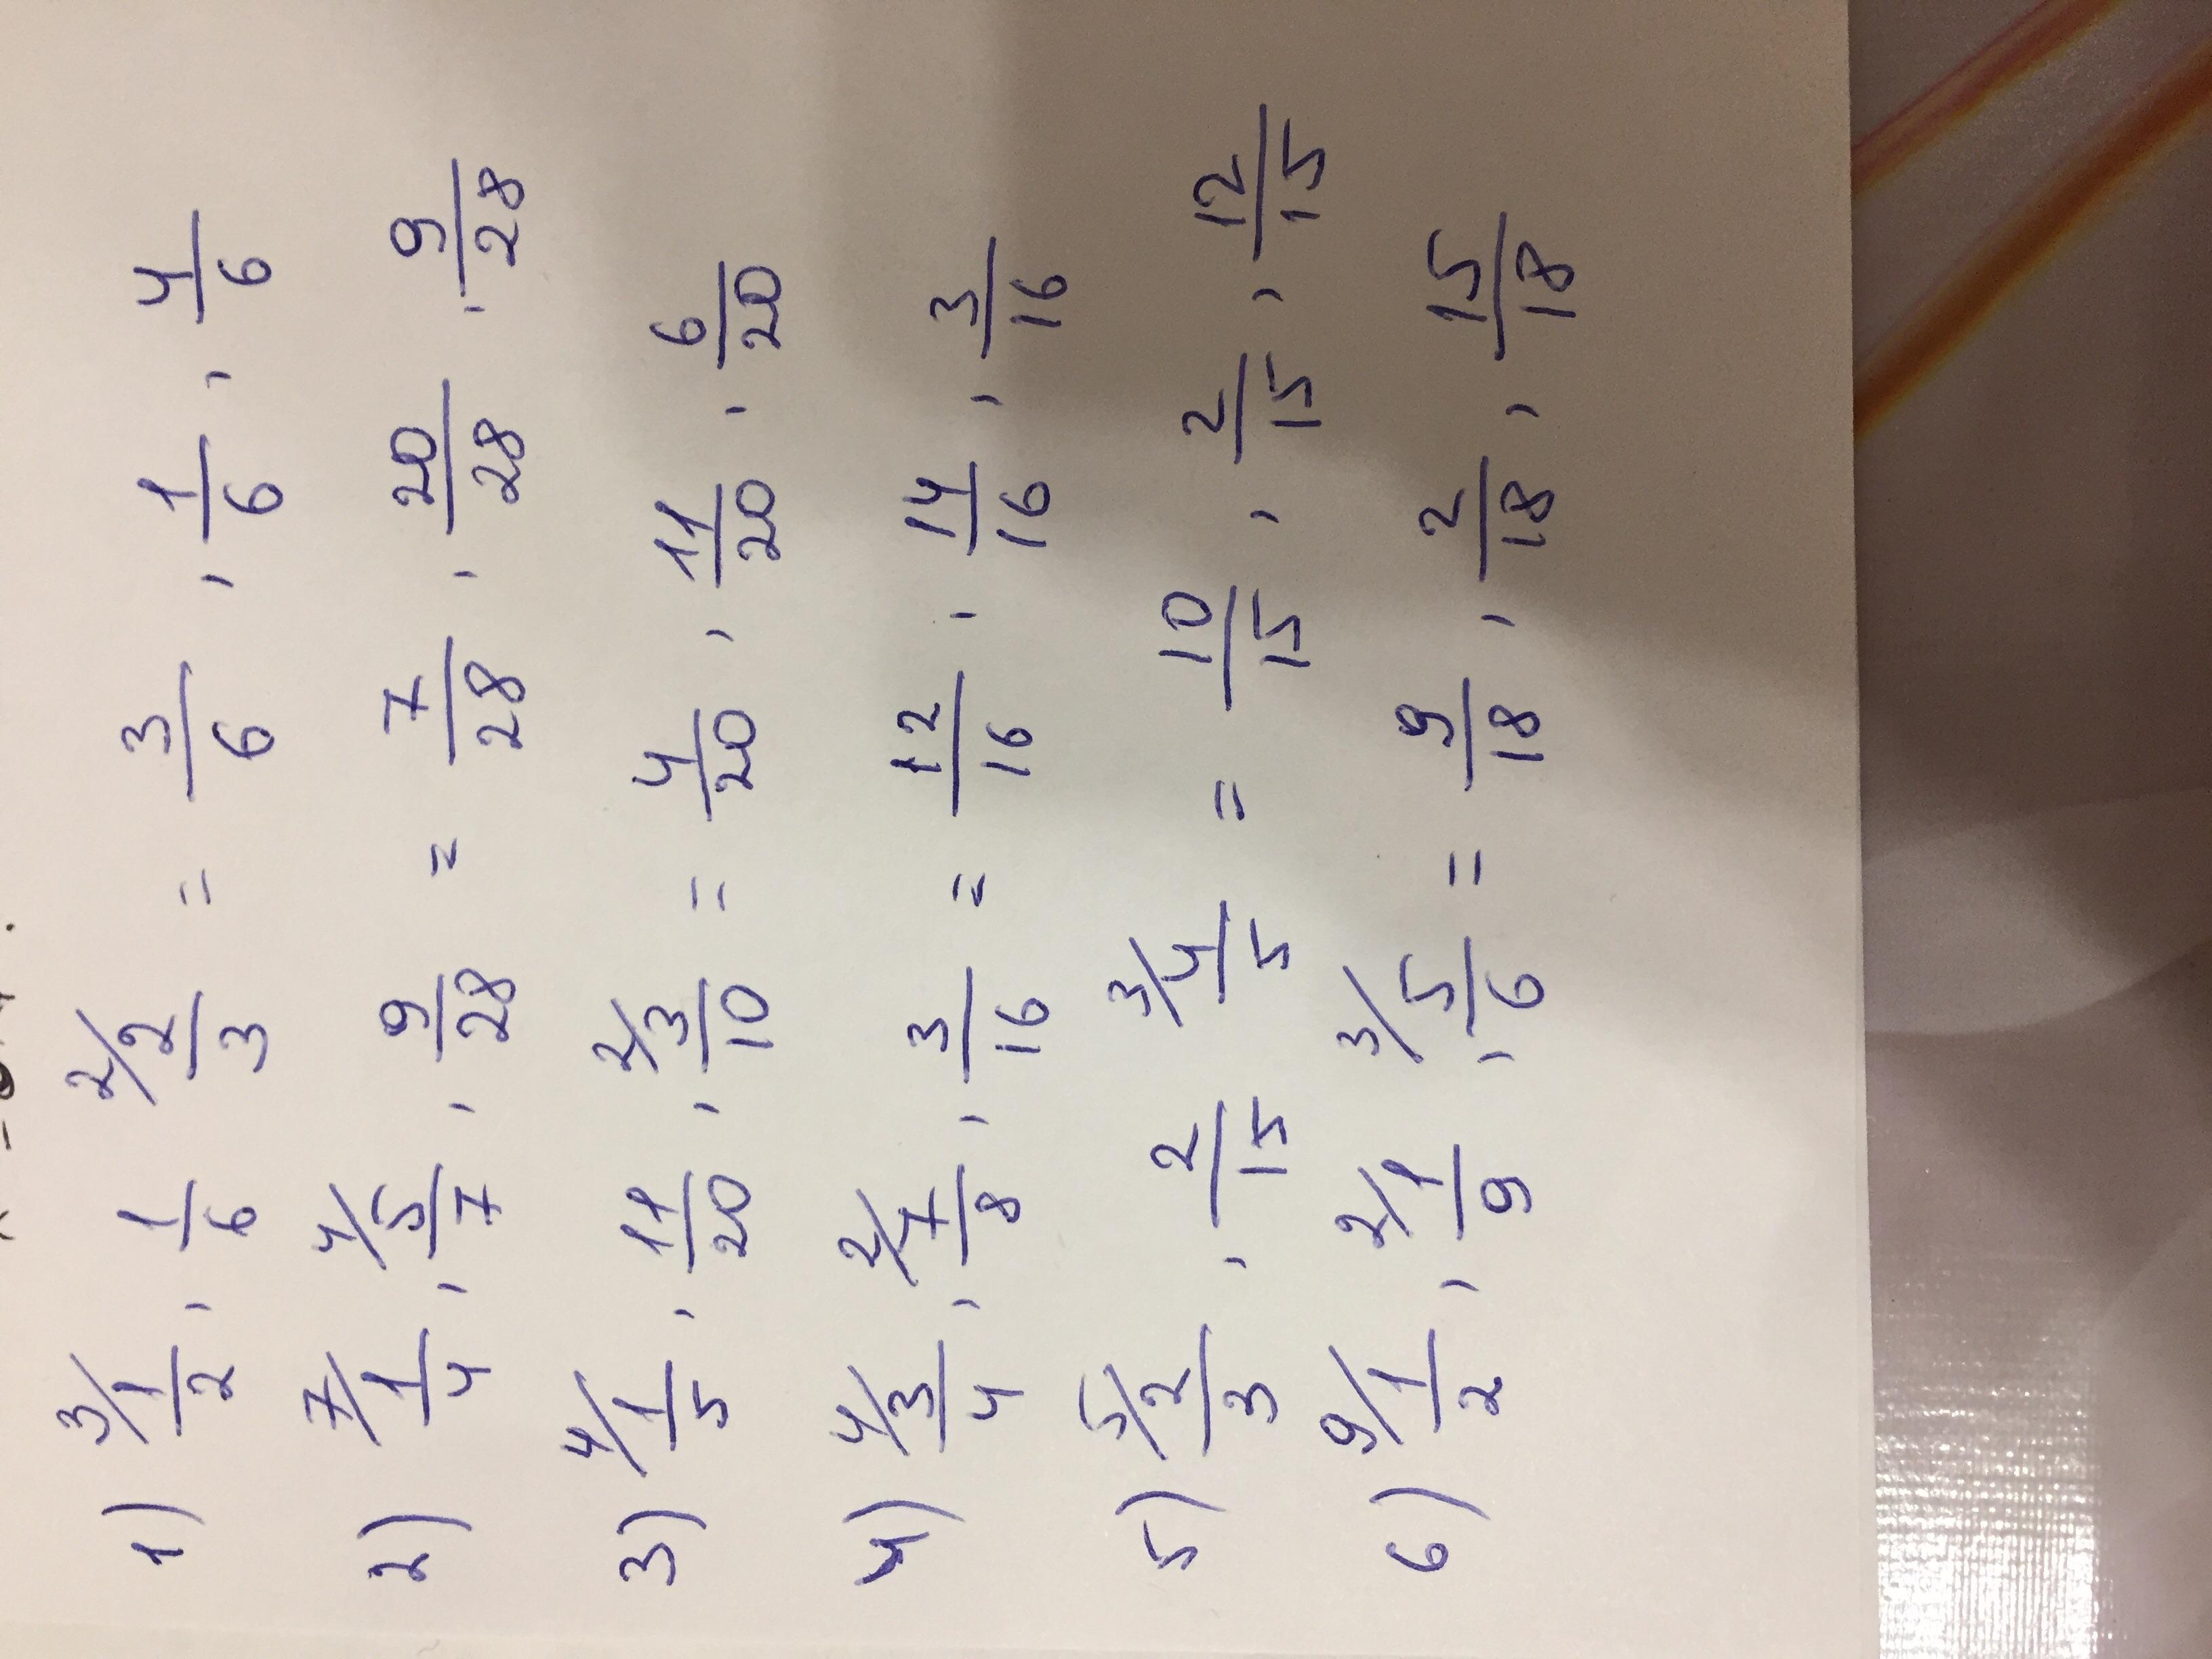 1) 3/ 1/2, 1/6 2/ 2/3 = 3/6, 1/6, 4/6
2) 7/ 1/4, 4/ 5/7, 9/28 = 7/28, 20/28, 9/28
3) 4/ 1/5, 11/20, 2/ 3/10 = 4/20, 11/20, 6/20
4) 4/ 3/4, 2/ 7/8, 3/16 = 12/16, 14/16, 3/16
5) 5/ 2/3, 2/15 3/ 4/5 = 10/15, 2/15, 12/15
6) 9/ 1/2, 2/ 1/9, 3/ 5/6 = 9/18, 2/18, 15/18